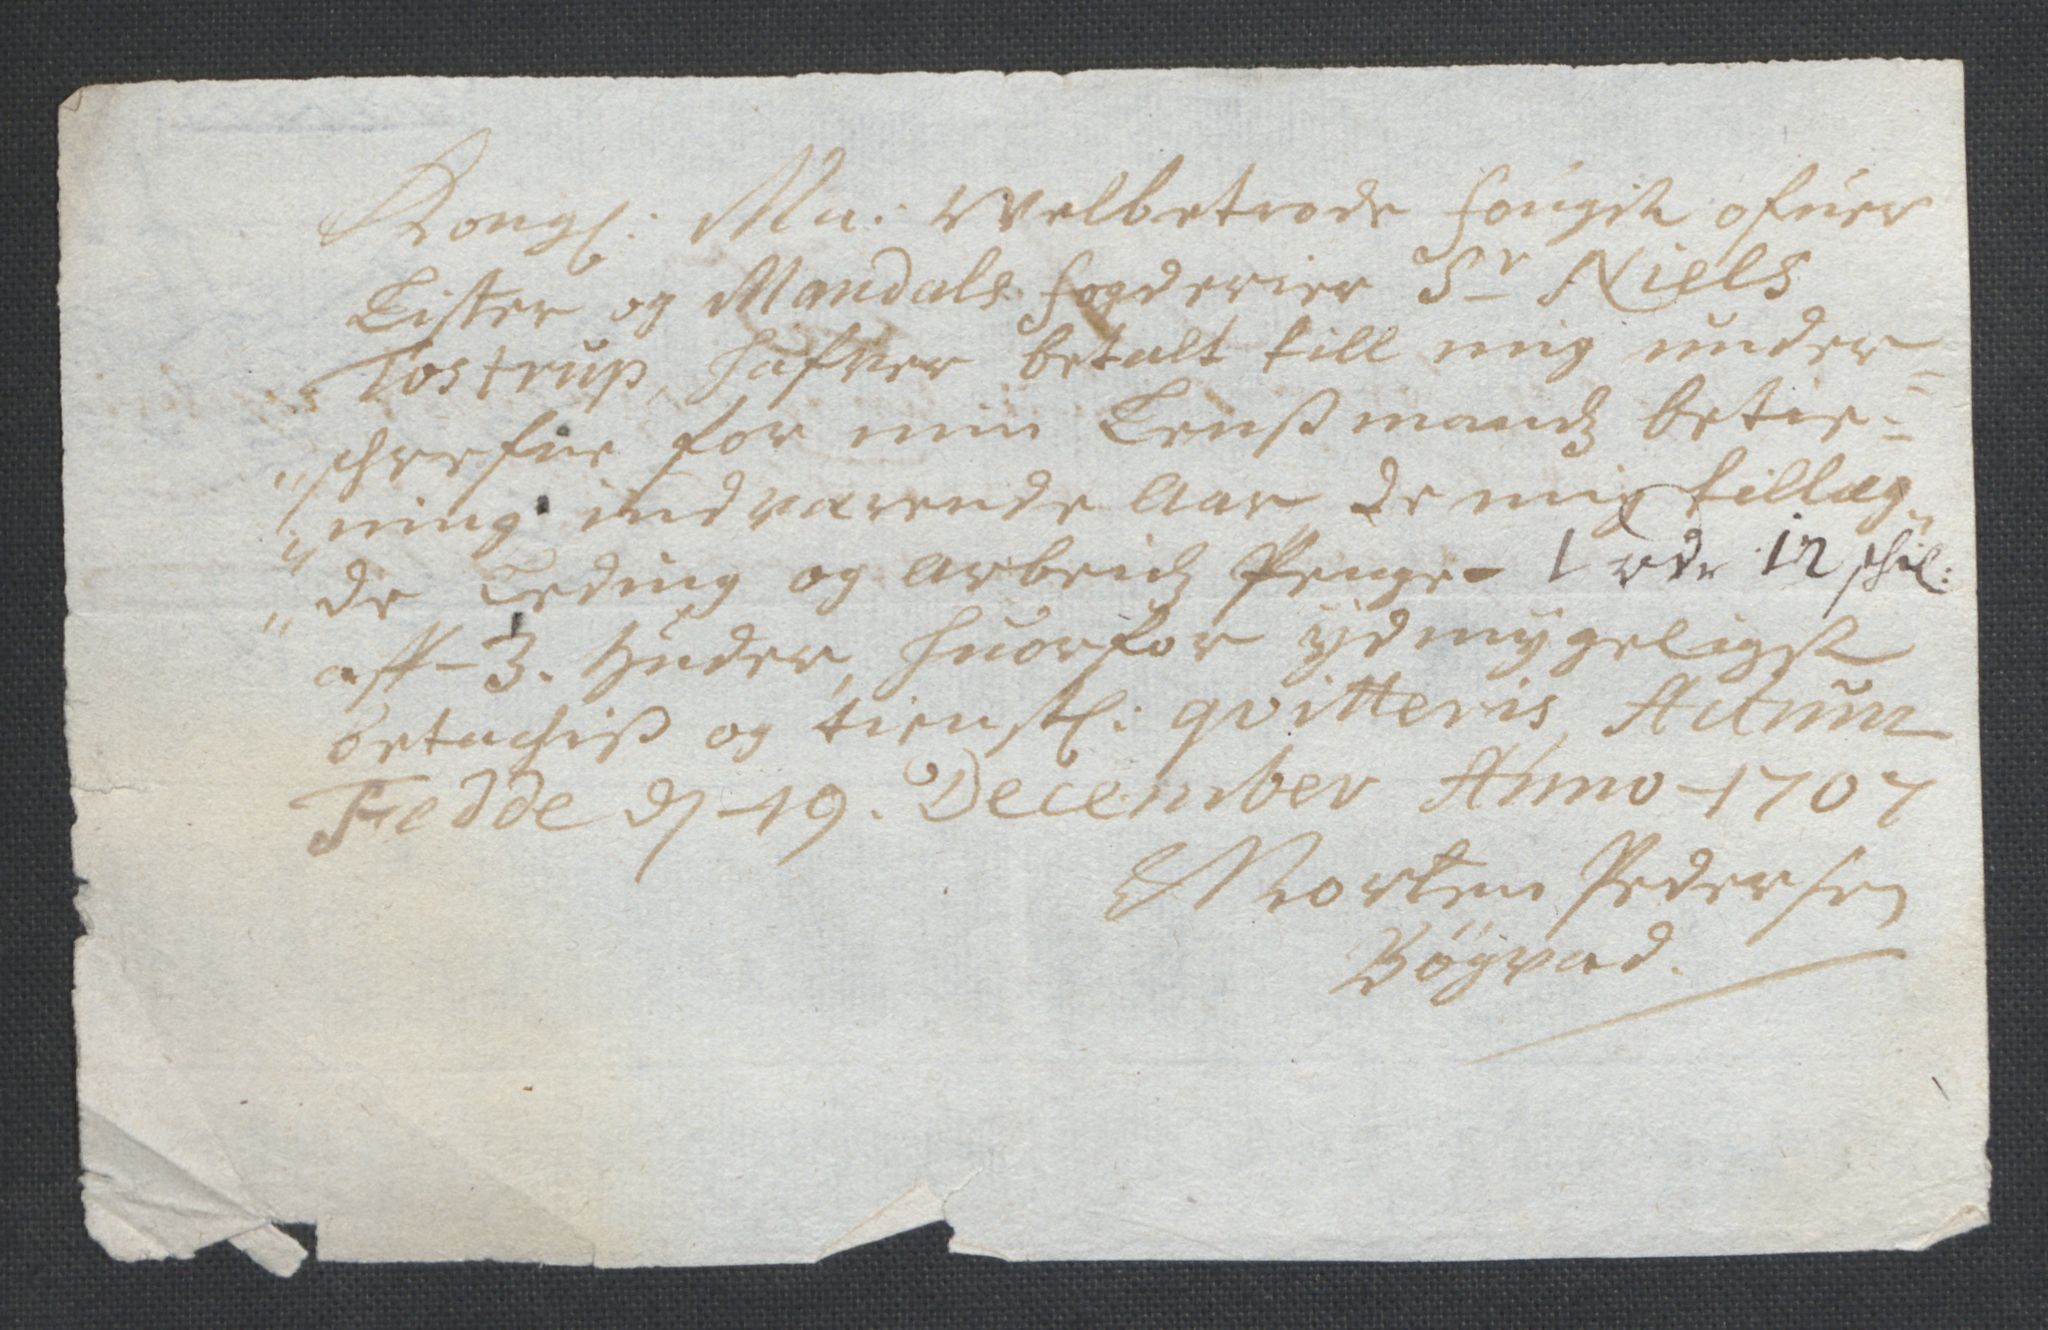 Kongl: Ma: Welbetrode fougit ofuer
Lister og Mandals fogderier Sr Niels
Tostrup, hafver betalt till mig under=
"schrefne for min Lenßmandz betie=
"ning indvarende Aar de mig tillæg"
"de Leding og arbeidz Penge - 1 rdr 12 schil:
aff - 3. huder, huorfor ydmygeligst
betachiß og tienstl: qvitteris, Actum
Fedde d - 19. December Anno - 1707
Morten Pedersen
Bögvad.